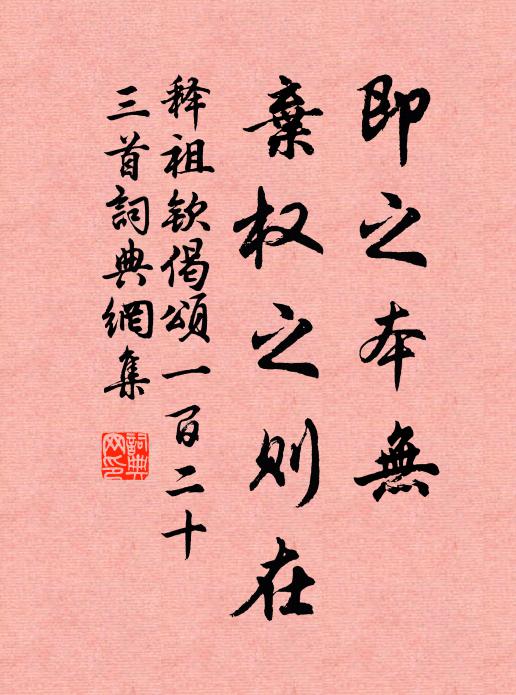 即之本無
棄权之则在
释祖钦偈頌一百二十
三首詞典網集
詞典网印